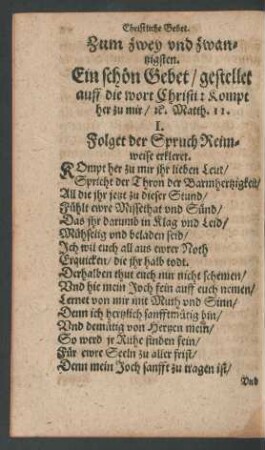 Christliche Gebet.
Zum zwey vnd zwan-
tzigsten.
Ein schön Gebet / gestellet
auff die wort Christi: Kompt
her zu mir / ꝛc. Matth. 11.
I.
Folget der Spruch Reim-
weise erkleret.
KOmpt her zu mir jhr lieben Leut /
Spricht der Thron der Barmhertzigkeit /
All die jhr jetzt zu dieser Stund /
Fühlt ewre Missethat vnd Sünd /
Das jhr darumb in Klag vnd Leid /
Mühselig vnd beladen seid /
Ich wil euch all aus ewer Noth
Erquicken / die jhr halb todt.
Derhalben thut euch mir nicht schemen /
Vnd hie mein Joch fein auff euch nemen /
Lernet von mir mit Muth vnd Sinn /
Denn ich hertzlich sanfftmütig bin /
Vnd demütig von Hertzen mein /
So werd jr Ruhe finden fein /
Für ewre Seeln zu aller frist /
Denn mein Joch sanfft zu tragen ist /
Vnd